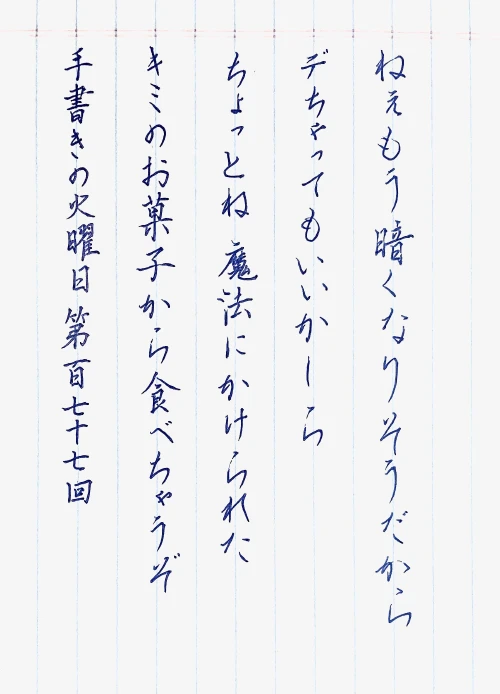 ねえもう暗くなりそうだから
デちゃってもいいかしら
ちょっとね魔法にかけられた
キミのお菓子から食べちゃうぞ
手書きの火曜日第百七十七回